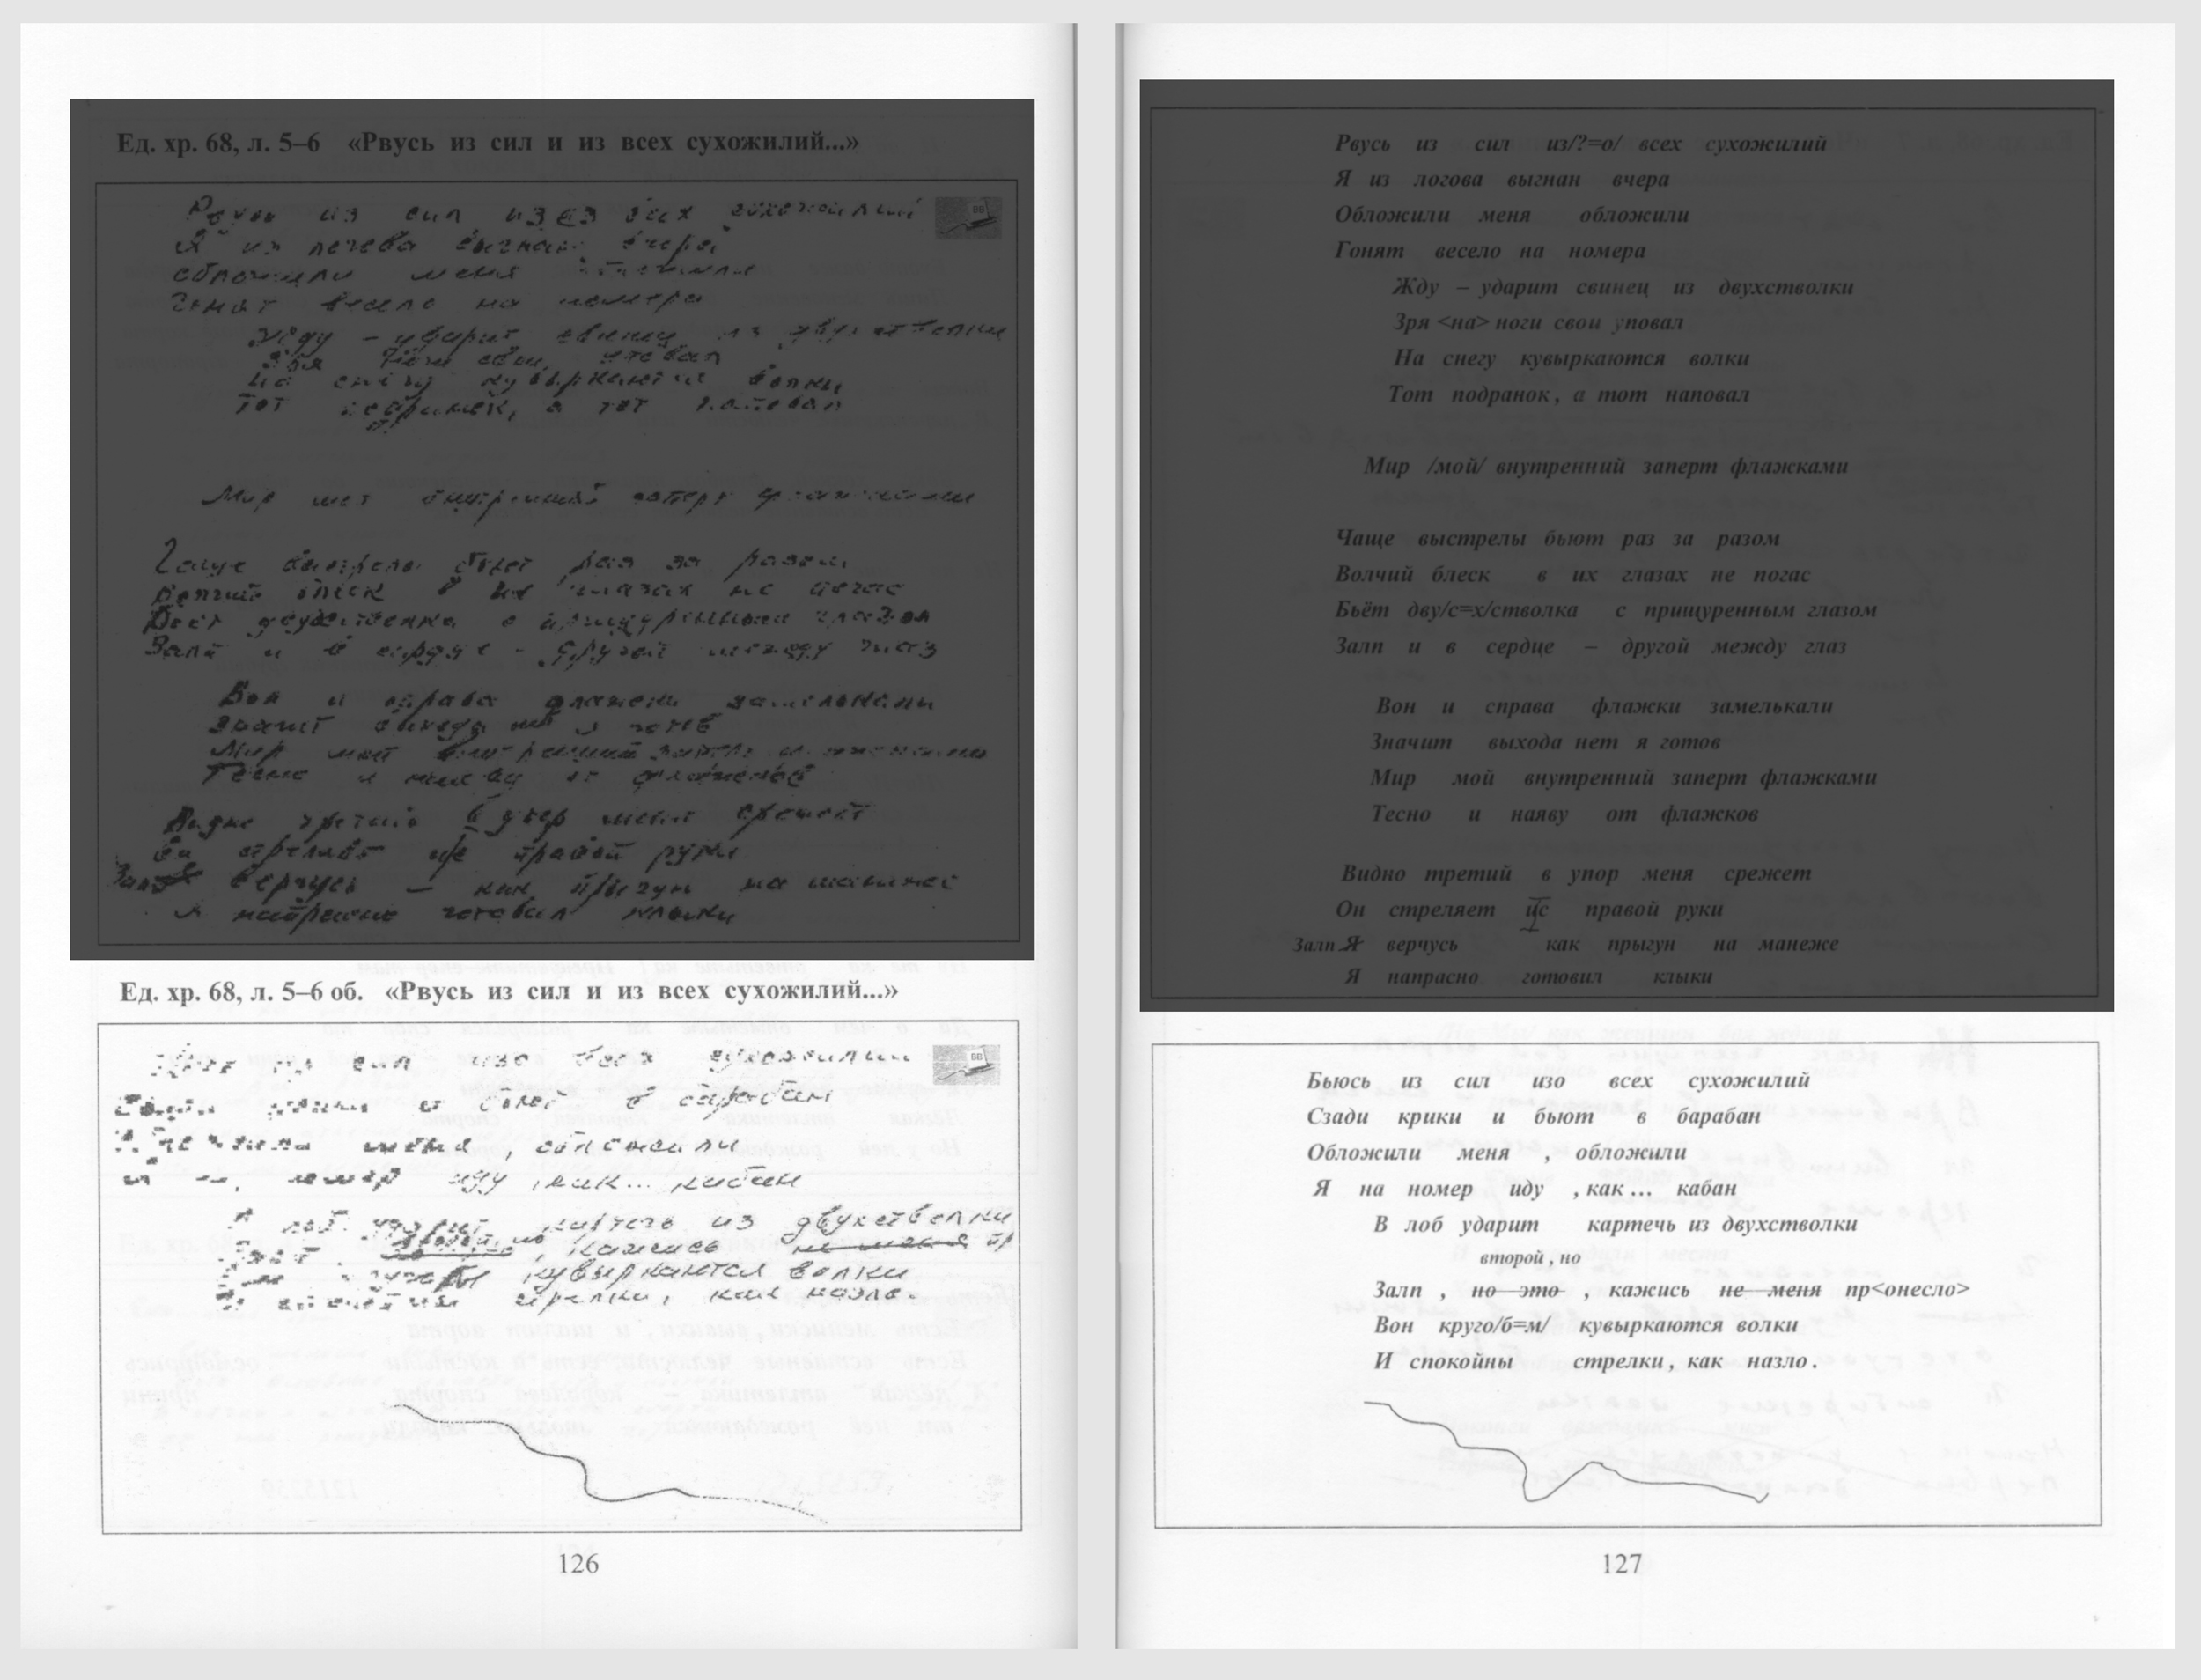 Ед. хр. 68, л. 5–6 «Рвусь из сил и из всех сухожилий...»
Рвусь из сил из всех сухожилий
Я из логова выгнан вчера
обложили меня обложили
Гонят весело на номера
Жду – ударит свинец из двухстволки
Зря ноги свои уповал
На снегу кувыркаются волки
Тот подранок, а тот наповал
Мир мой внутренний заперт флажками
Чаще выстрелы бьют раз за разом
Волчий блеск в их глазах не погас
Бьёт двухстволка с прищуренным глазом
Залп и в сердце – другой между глаз
Вон и справа флажки замелькали
Значит выхода нет я готов
Мир мой внутренний заперт флажками
Тесно и наяву от флажков
Видно третий в упор меня срежет
Он стреляет с правой руки
Залп верчусь – как прыгун на манеже
Я напрасно готовил клыки
Ед. хр. 68, л. 5–6 об. «Рвусь из сил и из всех сухожилий...»
из сил изо всех сухожилий
Сзади крики и бьют в барабан
Обложили меня, обложили
Я на номер иду, как... кабан
В лоб ударит картечь из двухстволки
второй, но
Залп, кажись не меня пр
Вон кувыркаются волки
И спокойны стрелки, как назло.
126
Рвусь из сил из/?=о/ всех сухожилий
Я из логова выгнан вчера
Обложили меня обложили
Гонят весело на номера
Жду – ударит свинец из двухстволки
Зря <на> ноги свои уповал
На снегу кувыркаются волки
Тот подранок, а тот наповал
Мир /мой/ внутренний заперт флажками
Чаще выстрелы бьют раз за разом
Волчий блеск в их глазах не погас
Бьёт дву/с=х/стволка с прищуренным глазом
Залп и в сердце – другой между глаз
Вон и справа флажки замелькали
Значит выхода нет я готов
Мир мой внутренний заперт флажками
Тесно и наяву от флажков
Видно третий в упор меня срежет
Он стреляет с правой руки
Залп Я верчусь как прыгун на манеже
Я напрасно готовил клыки
Бьюсь из сил изо всех сухожилий
Сзади крики и бьют в барабан
Обложили меня , обложили
Я на номер иду , как ... кабан
В лоб ударит картечь из двухстволки
второй , но
Залп , но это , кажись не меня пр<онесло>
Вон круго/б=м/ кувыркаются волки
И спокойны стрелки , как назло .
127